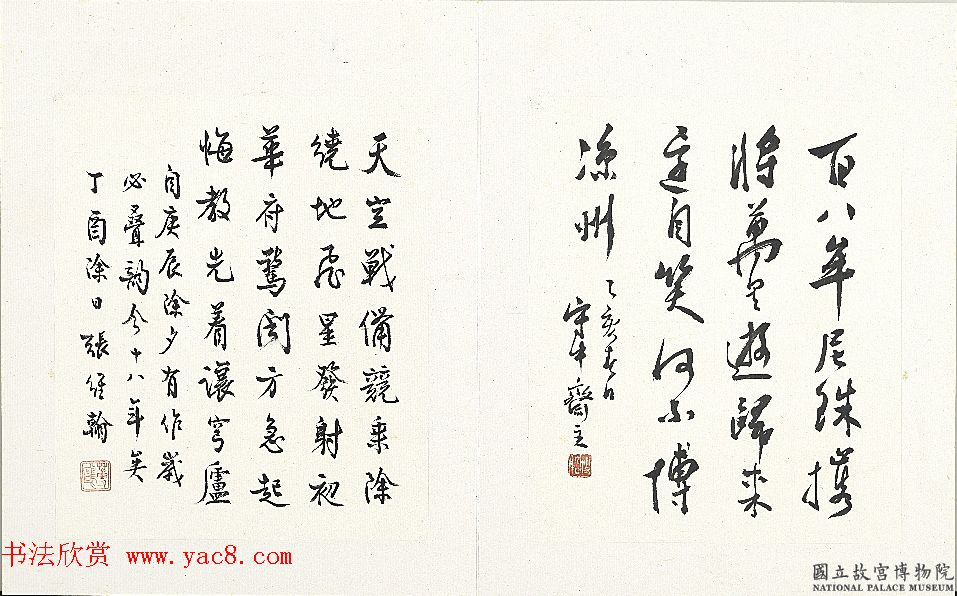 百八牟尼珠携
將萬里遊歸来
還自笑何不博
涼州 乙亥春日
守中齋主
天空戰備競乘除
繞地飛星發射初
華府驚聞方急起
悔教先着讓穹廬
自庚辰除夕有作歲
必疊韵今十八年矣
丁酉除日張維翰
书法欣赏 www.yac8.com
國立故宮博物院
NATIONAL PALACE MUSEUM